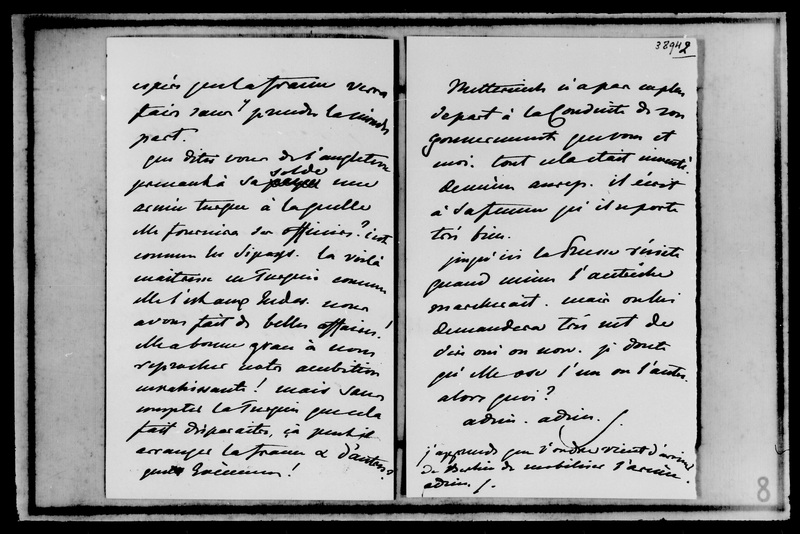 espérer que la france verra
faire sans y prendre la moindre
part.
que dites vous de l'angleterre
prenant à sa solde une
armée turque à laquelle
elle fournira des officiers? c'est
comme les Sipays. la voilà
maitresse en Turquie comme
elle l'est aux Indes. nous
avons fait de belles affaires!
elle a bonne grace à nous
reprocher notre ambition
envahissante! mais sans
compter la Turquie que cela
fait disparaitre. çà peut il
arranger la france & d'autres
que Guèrement!
38942
Metternich n'a pas
depart à la Conduite de son
gouvernement que vous et
moi. tout cela était inventé.
il écrit
à sa femme qu'il se porte
très bien.
jusqu'ici la Prusse résiste
quand même l'autriche
marcherait. mais on lui
demandera très net de
dire oui ou non. je doute
qu'elle ose l'un ou l'autre.
alors quoi?
adieu. adieu.
j'apprends que l'ordre vient d'arriver
de Berlin de mobiliser l'armée.
adieu.
8